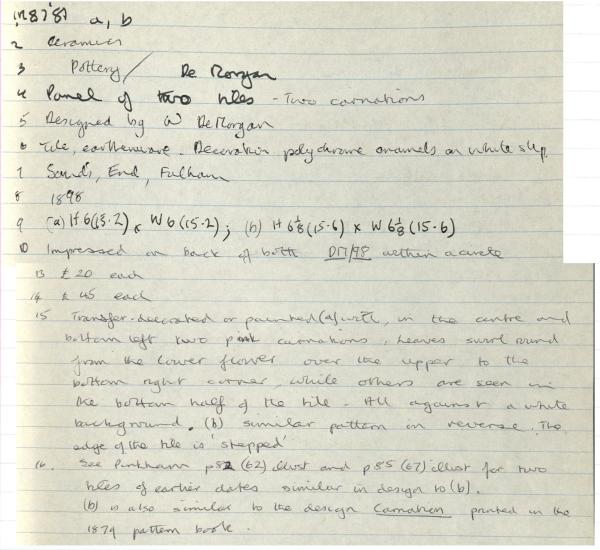 a, b
2 Ceramics
3 Pottery / De Morgan
4 Panel of two tiles - Two carnations
5 Designed by W DeMorgan
6 Tile, earthenware. Decoration polychrome enamels on white slip.
7 Sands, End, Fulham
8 1898
9 (a) H 6 (15.2) x W 6 (15.2); (b) H 6 1/8 (15.6) x W 6 1/8 (15.6)
10 Impressed on back of both DM/98 within a circle
13 £20 each
14 £45 each
15 Transfer-decorated or painted (a) with, in the centre and
bottom left two pink carnations, leaves swirl round
from the lower flower over the upper to the
bottom right corner, while others are seen in
the bottom half of the tile. All against a white
background. (b) similar pattern in reverse. The
edge of the tile is 'stepped'
16. See Pinkham p82 (62) illust and p85 (67) illust for two
tiles of earlier dates similar in design to (b).
(b) is also similar to the design Carnation printed in the
1879 pattern book.